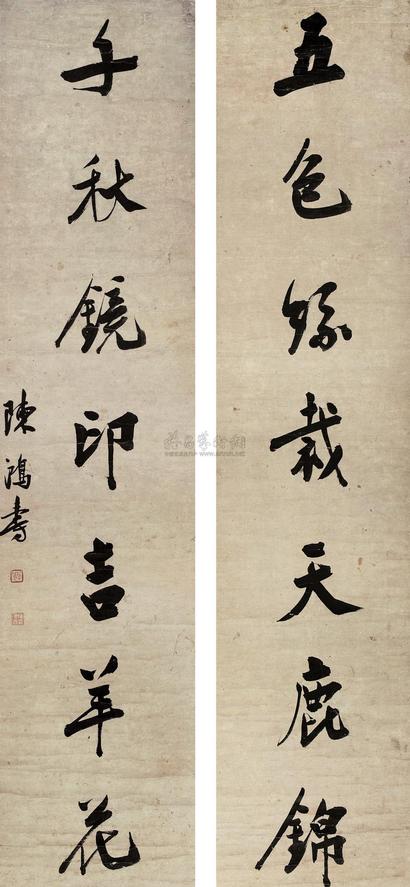 五色絲裁天鹿錦
千秋鏡印吉羊花
陳鴻壽